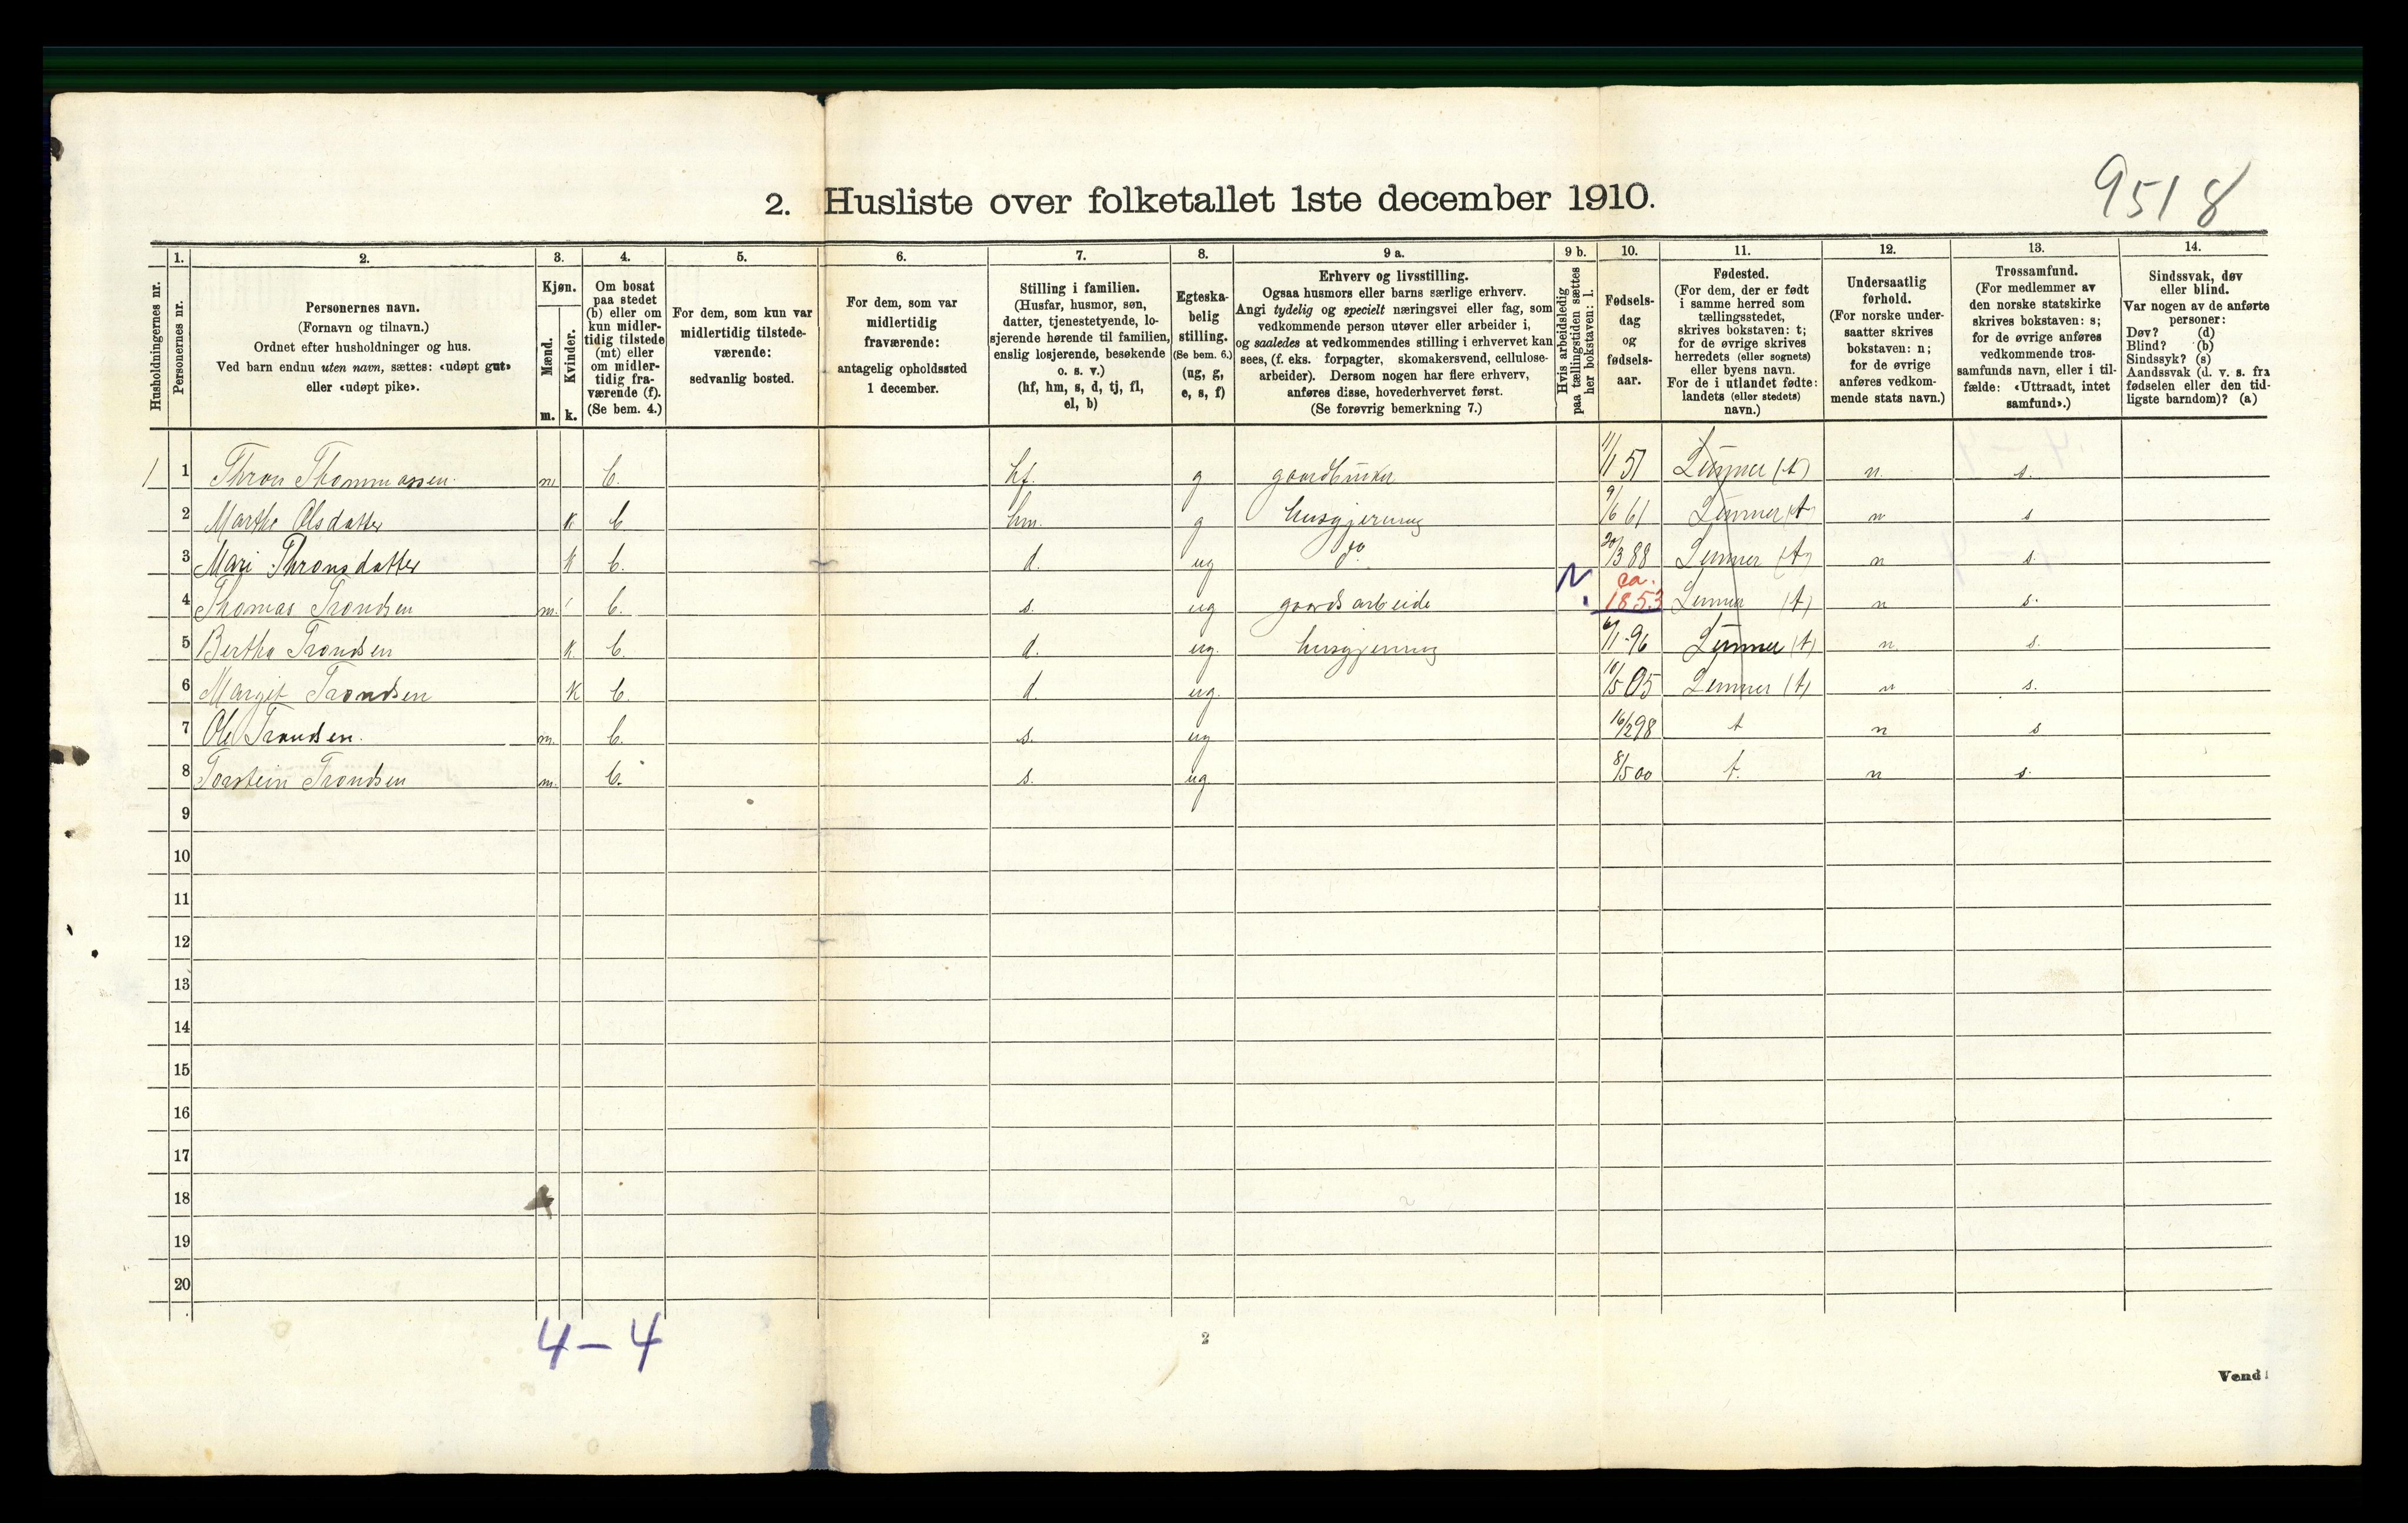 9518
2. Husliste over folketallet 1ste december 1910.
Husholdningernes nr.
1.
Personernes nr.
2.
Personernes navn.
(Fornavn og tilnavn.)
Ordnet efter husholdninger og hus.
Ved barn endnu uten navn, sættes: «udøpt gut»
eller «udøpt pike».
3.
Kjøn.
Mænd.
Kvinder.
m. k.
4.
Om bosat
paa stedet
(b) eller om
kun midler-
tidig tilstede
(mt) eller
om midler-
tidig fra-
værende (f).
(Se bem. 4.)
5.
For dem, som kun var
midlertidig tilstede-
værende:
sedvanlig bosted.
6.
For dem, som var
midlertidig
fraværende:
antagelig opholdssted
1 december.
7.
Stilling i familien.
(Husfar, husmor, søn,
datter, tjenestetyende, lo-
sjerende hørende til familien,
enslig losjerende, besøkende
o. s. v.)
(hf, hm, s, d, tj, fl,
el, b)
8.
Egteska-
belig
stilling.
(Se bem. 6.)
(ug, g,
e, s, f)
9 a.
Erhverv og livsstilling.
Ogsaa husmors eller barns særlige erhverv.
Angi tydelig og specielt næringsvei eller fag, som
vedkommende person utøver eller arbeider i,
og saaledes at vedkommendes stilling i erhvervet kan
sees, (f. eks. forpagter, skomakersvend, cellulose-
arbeider). Dersom nogen har flere erhverv,
anføres disse, hovederhvervet først.
(Se forøvrig bemerkning 7.)
9 b.
Hvis arbeidsledig
paa tællingstiden sættes
her bokstaven: l.
10.
Fødsels-
dag
og
fødsels-
aar.
11.
Fødested.
(For dem, der er født
i samme herred som
tællingsstedet,
skrives bokstaven: t;
for de øvrige skrives
herredets (eller sognets)
eller byens navn.
For de i utlandet fødte:
landets (eller stedets)
navn.)
12.
Undersaatlig
forhold.
(For norske under-
saatter skrives
bokstaven: n;
for de øvrige
anføres vedkom-
mende stats navn.)
13.
Trossamfund.
(For medlemmer av
den norske statskirke
skrives bokstaven: s;
for de øvrige anføres
vedkommende tros-
samfunds navn, eller i til-
fælde: «Uttraadt, intet
samfund».)
14.
Sindssvak, døv
eller blind.
Var nogen av de anførte
personer:
Døv? (d)
Blind? (b)
Sindssyk? (s)
Aandssvak (d. v. s. fra
fødselen eller den tid-
ligste barndom)? (a)
1 1 Thron Thommassen. m b. hf. g gaardbruker 11/1 51 Lunner (t) n. s.
2 Marthe Olsdatter k b hm. g husgjerning 9/6 61 Lunner (t) n s
3 Mari Thronsdatter k b. d. ug do 20/3 88 Lunner (t) n s.
4 Thomas Trondsen m. b. s. ug gaardsarbeide N. ca. 1853 Lunner (t) n s.
5 Bertha Trondsen k b. d. ug. husgjerning 6/1 96 Lunner (t) n. s.
6 Margit Trondsen k b. d. ug. 10/5 05 Lunner (t) n s.
7 Ole Trondsen. m. b. s. ug 16/2 98 t n s
8 Torstein Trondsen m. b. s. ug. 8/5 00 t. n s.
9
10
11
12
13
14
15
16
17
18
19
20
4 – 4
2
Vend!